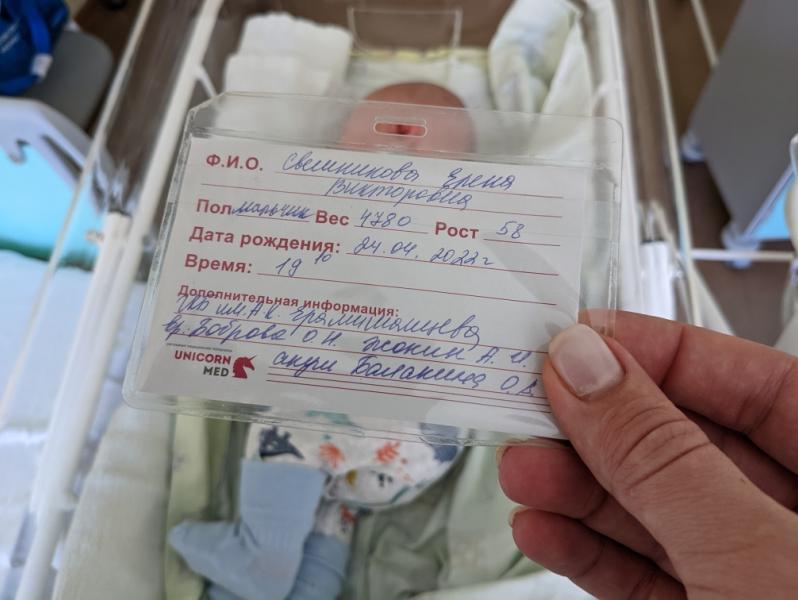 Ф.И.О. Свешникова Елена
Викторовна
Пол мальчик Вес 4780 Рост 58
Дата рождения: 24.04.2022г
Время: 19 10
Дополнительная информация:
ГКБ им. А.К. Ерамишанцева
Вр. Боброва О.Н. Жокин А.И.
акуш Балакина О.В.
UNICORN
MED